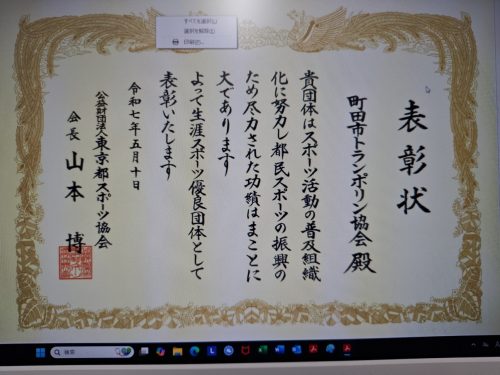 すべてを選択(L)
選択を解除(E)
印刷(P)...
表彰状
町田市トランポリン協会 殿
貴団体はスポーツ活動の普及組織
化に努力し都民スポーツの振興の
ため尽力された功績はまことに
大であります
よって生涯スポーツ優良団体として
表彰いたします
令和七年五月十日
公益財団法人東京都スポーツ協会
会長 山本 博
検索